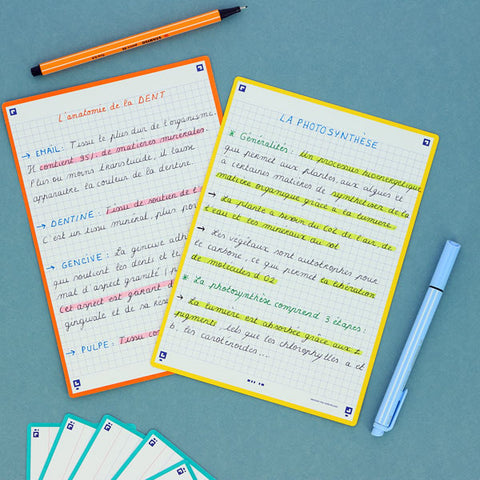 L'anatomie de la DENT
→ EMAIL : Tissu le plus dur de l'organisme.
Il contient 95% de matières minérales.
Plus ou moins translucide, il laisse
apparaître la couleur de la dentine.
→ DENTINE : Tissu de soutien de l'
C'est un tissu minéral, plus
→ GENCIVE : La gencive
qui soutient les dents et
mat d'aspect granité
Cet aspect est garant
gingivale et de sa
→ PULPE : Tissu
LA PHOTOSYNTHÈSE
* Généralités : Un processus bioénergétique
qui permet aux plantes, aux algues et
à certaines matières de synthétiser de la
matière organique grâce à la lumière
→ La plante a besoin du CO2 de l'air, de
l'eau et les minéraux du sol
→ Les végétaux sont autotrophes pour
le carbone, ce qui permet la libération
de molécules d'O2
* La photosynthèse comprend 3 étapes :
→ La lumière est absorbée grâce aux 2
pigments, tels que les chlorophylles a et
b, les caroténoïdes....